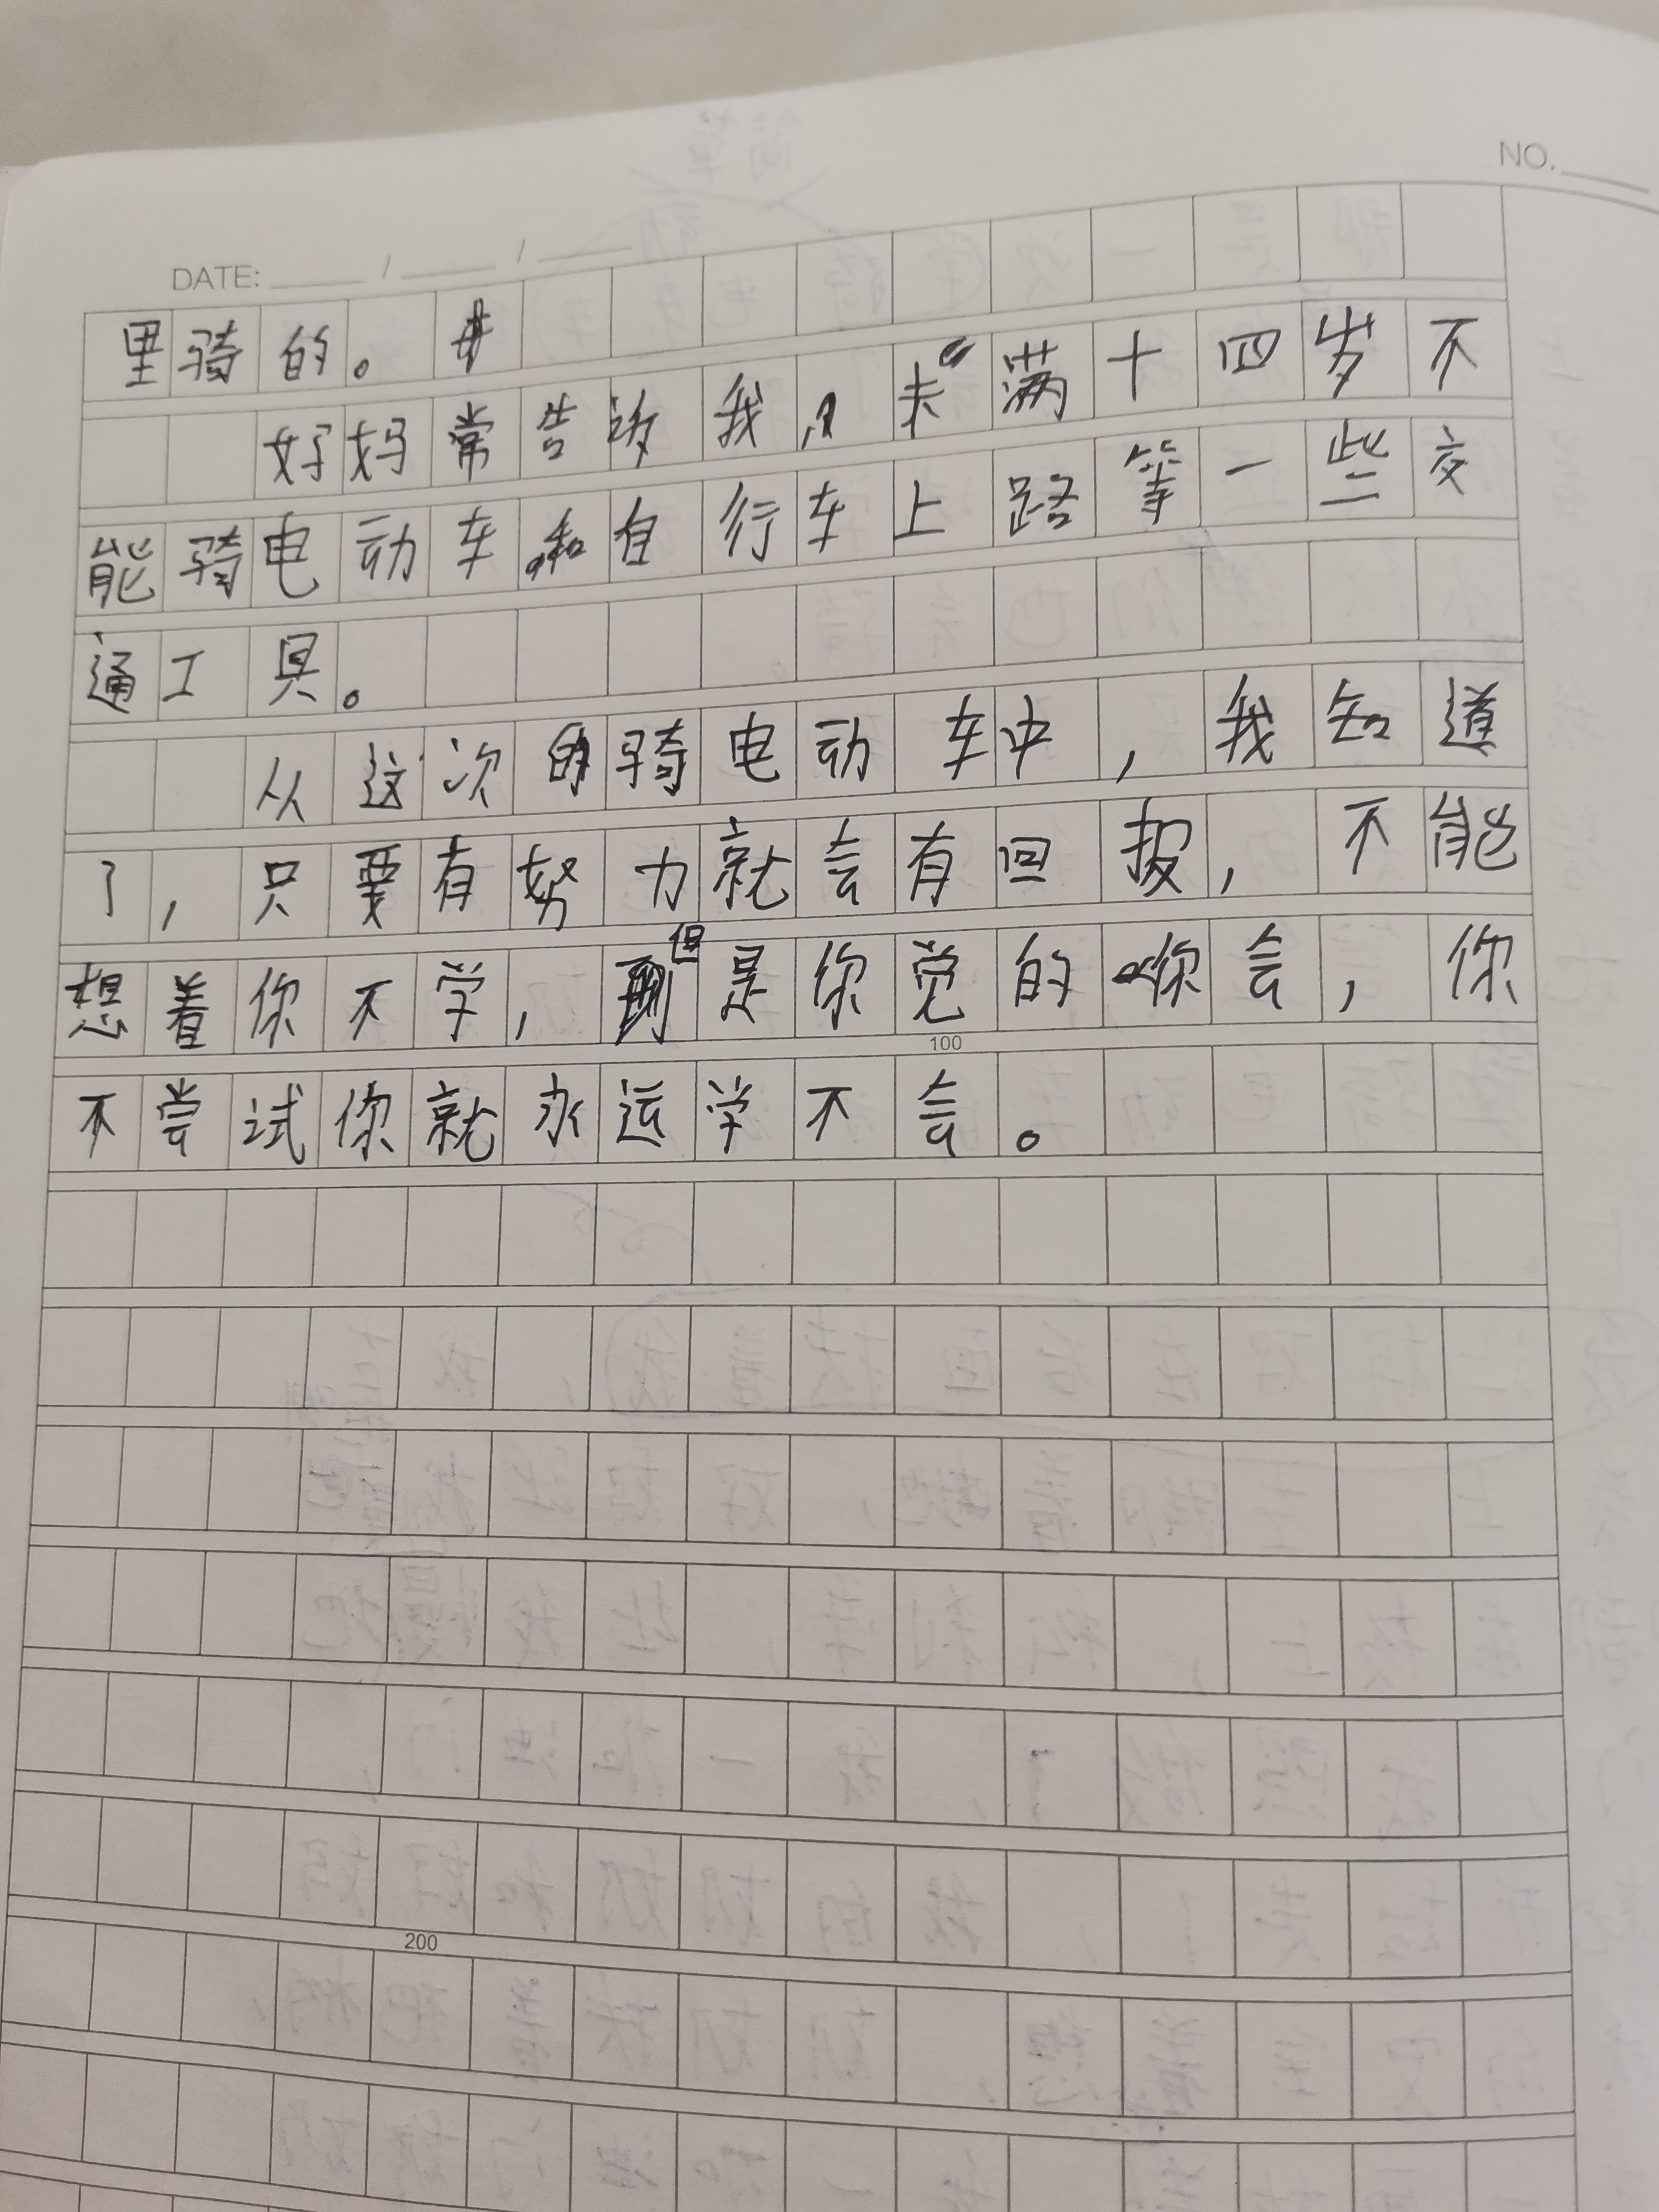 NO.
DATE: / /
里骑的。
好妈常告诉我,未满十四岁不
能骑电动车和自行车上路等一些交
通工具。
从这次的骑电动车中,我知道
了,只要有努力就会有回报,不能
想着你不学,但是你觉的你会,你
100
不尝试你就永远学不会。
200